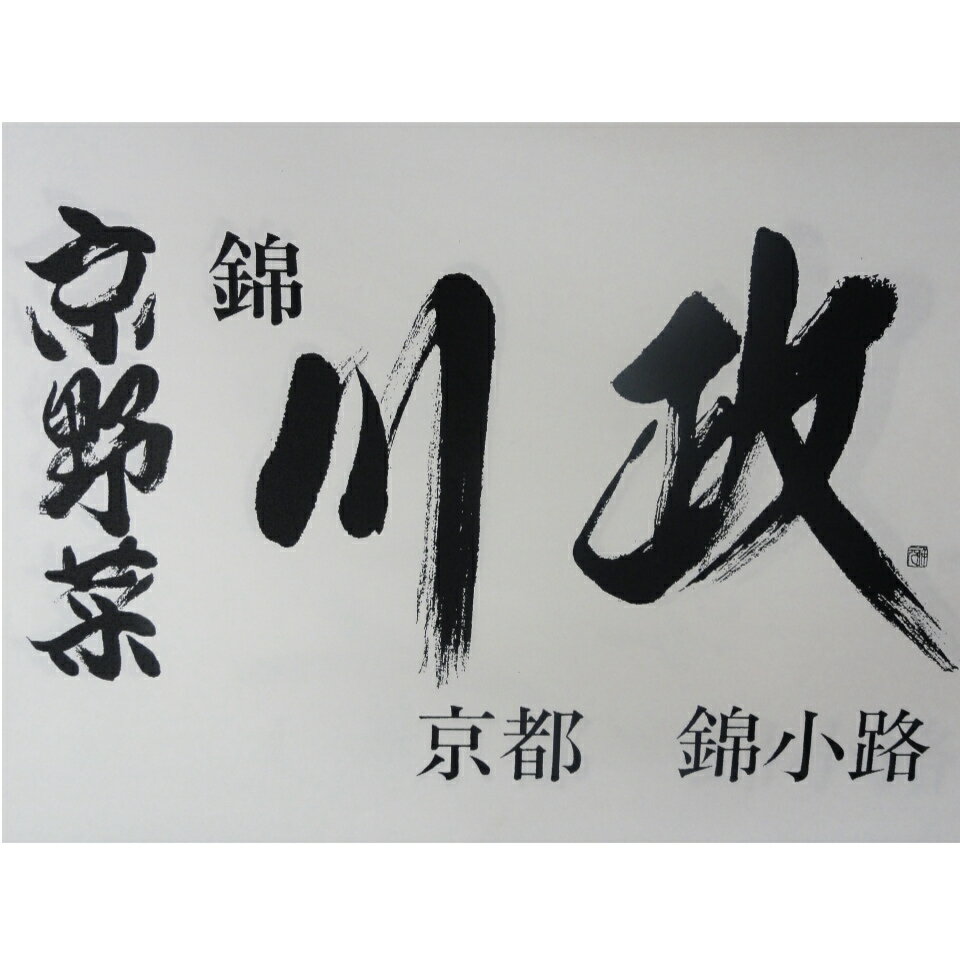 京野菜
錦
川政
京都　錦小路